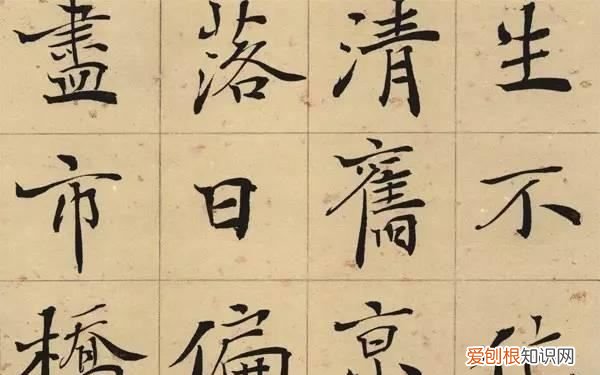 生不
清舊京
落日偏
盡市橋
爱刨根知识网